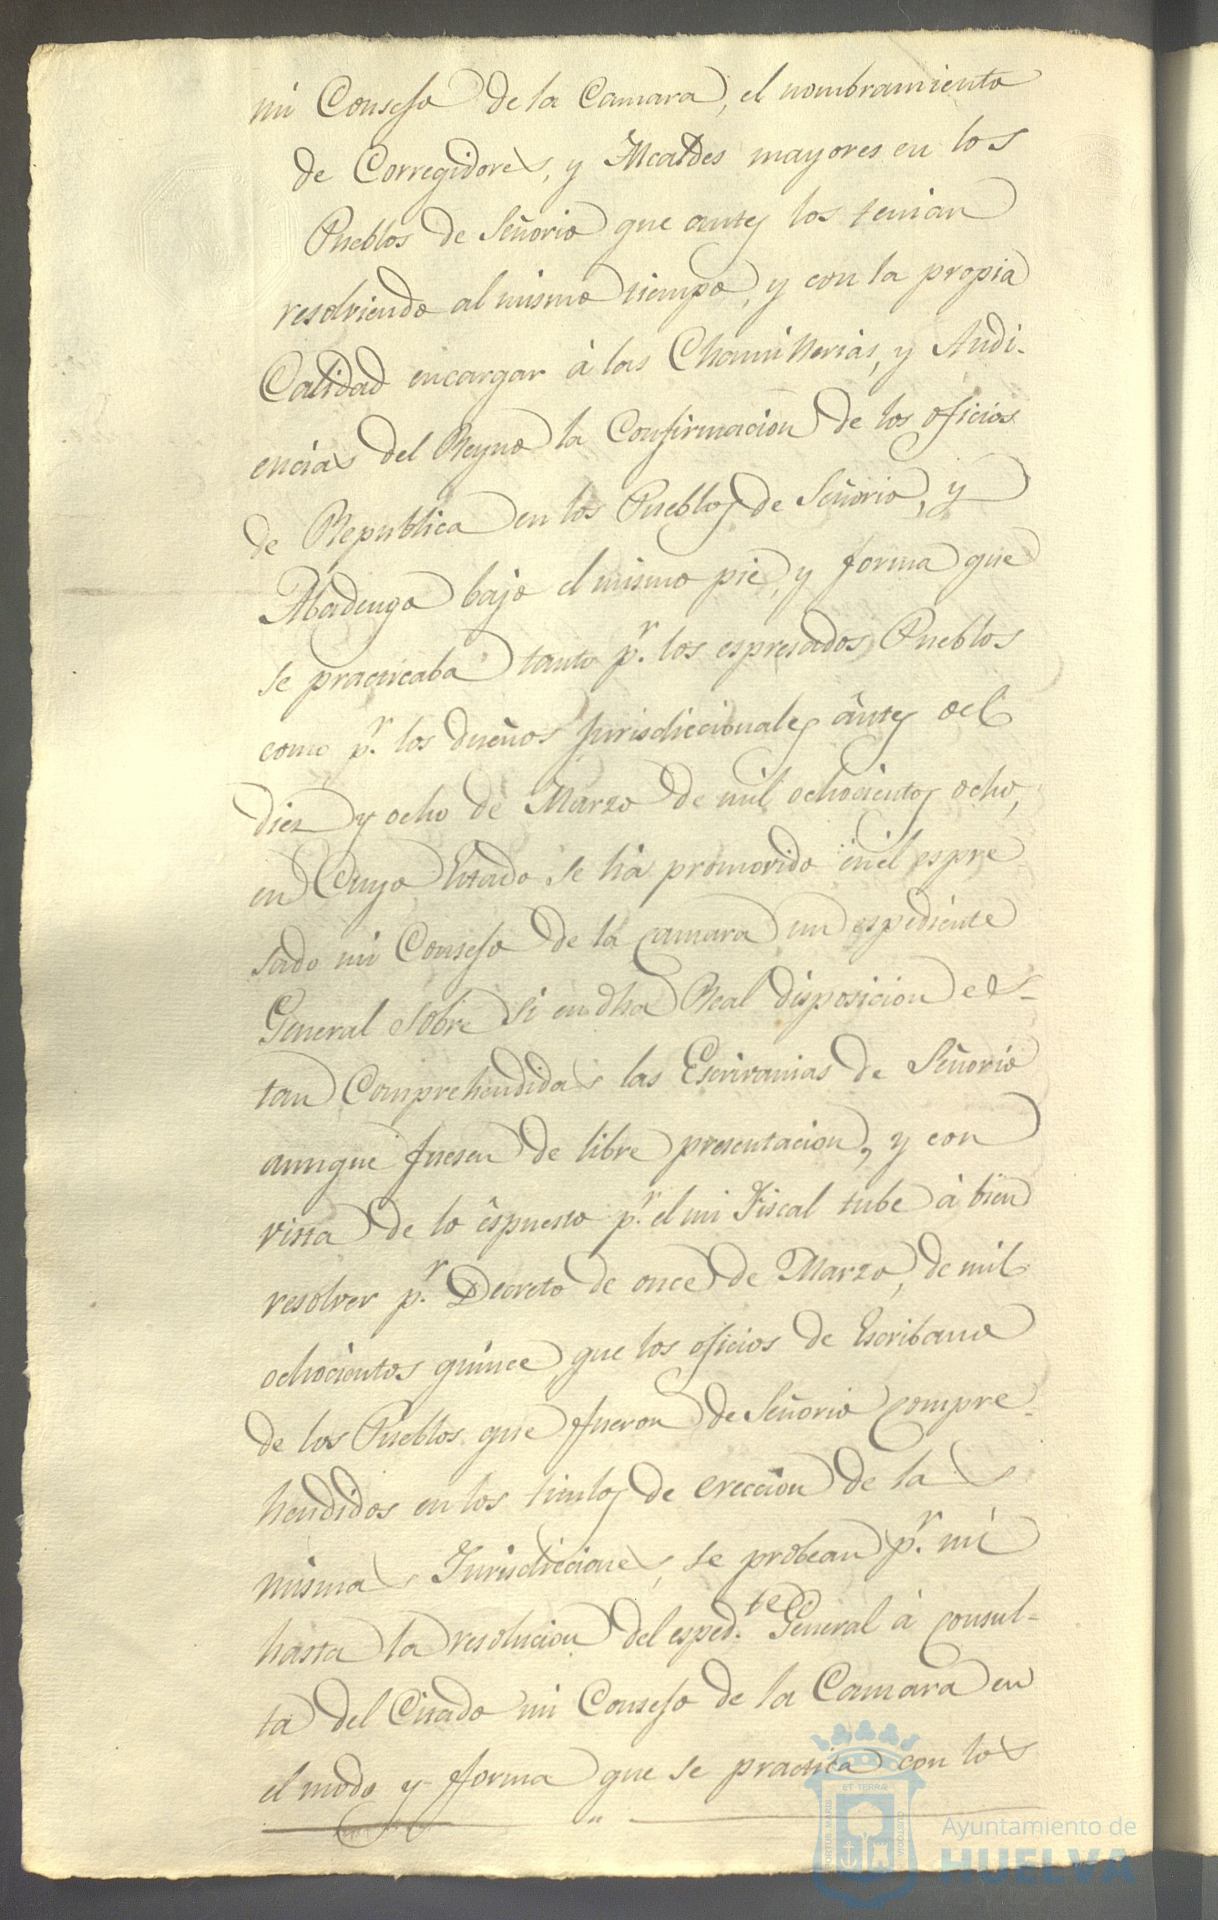 mi Consejo de la Camara, el nombramiento
de Corregidores, y Alcaldes mayores en los
Pueblos de Señorio que antes los tenian
resolviendo al mismo tiempo, y con la propia
Calidad encargar á las Chanillerias, y Audi-
encias del Reyno la Confirmacion de los oficios
de Republica en los Pueblos de Señorio, y
Abadengo bajo el mismo pie, y forma que
se practicaba tanto pr. los espresados Pueblos
como pr. los dueños Jurisdiccionales ântes del
diez y ocho de Marzo de mil ochocientos ocho,
en Cuyo Estado se há promovido en el espre
sado mi Consejo de la Camara un espediente
General sobre si en dha Real disposicion es-
tan Comprehendidas las Escrivanias de Señorio
aunque fuesen de libre presentacion, y con
vista de lo êspuesto pr. el mi Fiscal tube à bien
resolver pr. Decreto de once de Marzo, de mil
ochocientos quince, que los oficios de Escribano
de los Pueblos que fueron de Señorio compre-
hendidos en los titulos de ereccion de la s
misma s Jurisdicciones, se probean pr. mi
hasta la resolucion del esped.te General à consul-
ta del Citado mi Consejo de la Camara en
el modo y forma que se practica con los
PORTUS MARIS ET TERRÆ CUSTODIA
Ayuntamiento de
HUELVA